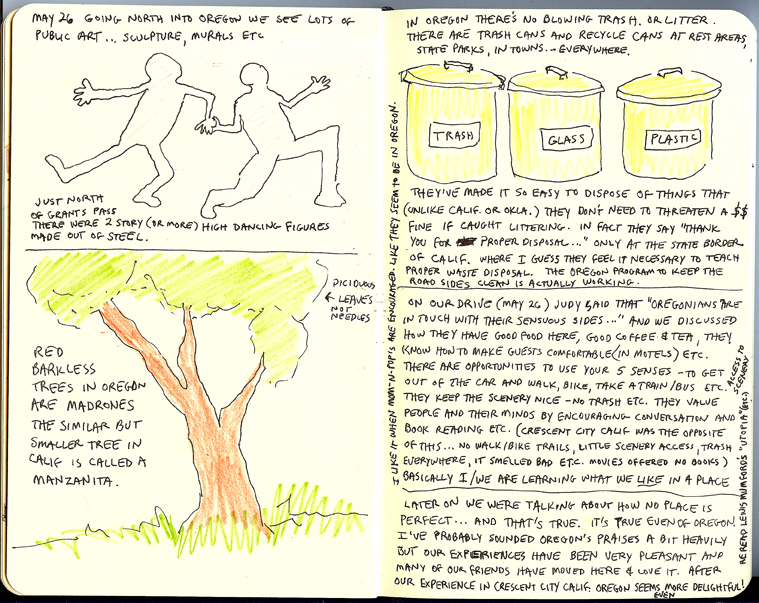 MAY 26 GOING NORTH INTO OREGON WE SEE LOTS OF
PUBLIC ART... SCULPTURE, MURALS ETC
JUST NORTH
OF GRANTS PASS
THERE WERE 2 STORY (OR MORE) HIGH DANCING FIGURES
MADE OUT OF STEEL.
DICIDUOUS
← LEAVES
NOT
NEEDLES
RED
BARKLESS
TREES IN OREGON
ARE MADRONES
THE SIMILAR BUT
SMALLER TREE IN
CALIF IS CALLED A
MANZANITA.
IN OREGON THERE'S NO BLOWING TRASH. OR LITTER.
THERE ARE TRASH CANS AND RECYCLE CANS AT REST AREAS,
STATE PARKS, IN TOWNS... EVERYWHERE.
TRASH
GLASS
PLASTIC
THEY'VE MADE IT SO EASY TO DISPOSE OF THINGS THAT
(UNLIKE CALIF. OR OKLA.) THEY DON'T NEED TO THREATEN A $$
FINE IF CAUGHT LITTERING. IN FACT THEY SAY "THANK
YOU FOR PROPER DISPOSAL..." ONLY AT THE STATE BORDER
OF CALIF. WHERE I GUESS THEY FEEL IT NECESSARY TO TEACH
PROPER WASTE DISPOSAL. THE OREGON PROGRAM TO KEEP THE
ROAD SIDES CLEAN IS ACTUALLY WORKING.
ON OUR DRIVE (MAY 26) JUDY SAID THAT "OREGONIANS ARE
IN TOUCH WITH THEIR SENSUOUS SIDES..." AND WE DISCUSSED
HOW THEY HAVE GOOD FOOD HERE, GOOD COFFEE & TEA, THEY
KNOW HOW TO MAKE GUESTS COMFORTABLE (IN MOTELS) ETC.
THERE ARE OPPORTUNITIES TO USE YOUR 5 SENSES - TO GET
OUT OF THE CAR AND WALK, BIKE, TAKE A TRAIN/BUS ETC.
ACCESS TO
SCENERY
THEY KEEP THE SCENERY NICE - NO TRASH ETC. THEY VALUE
PEOPLE AND THEIR MINDS BY ENCOURAGING CONVERSATION AND
BOOK READING ETC. (CRESCENT CITY CALIF WAS THE OPPOSITE
OF THIS... NO WALK/BIKE TRAILS, LITTLE SCENERY ACCESS, TRASH
EVERYWHERE, IT SMELLED BAD ETC. MOVIES OFFERED NO BOOKS)
BASICALLY I/WE ARE LEARNING WHAT WE LIKE IN A PLACE
LATER ON WE WERE TALKING ABOUT HOW NO PLACE IS
PERFECT... AND THAT'S TRUE. IT'S TRUE EVEN OF OREGON.
I'VE PROBABLY SOUNDED OREGON'S PRAISES A BIT HEAVILY
BUT OUR EXPERIENCES HAVE BEEN VERY PLEASANT AND
MANY OF OUR FRIENDS HAVE MOVED HERE & LOVE IT. AFTER
OUR EXPERIENCE IN CRESCENT CITY CALIF. OREGON SEEMS EVEN MORE DELIGHTFUL!
I LIKE IT WHEN MOM-N-POP'S ARE ENCOURAGED. LIKE THEY SEEM TO BE IN OREGON.
REREAD LEWIS MUMFORD'S "UTOPIA" (ETC)